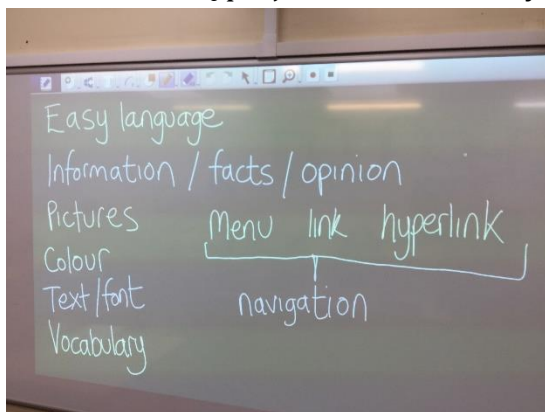 Easy language
Information / facts / opinion
Pictures
Menu link hyperlink
Colour
Text/font
navigation
Vocabulary